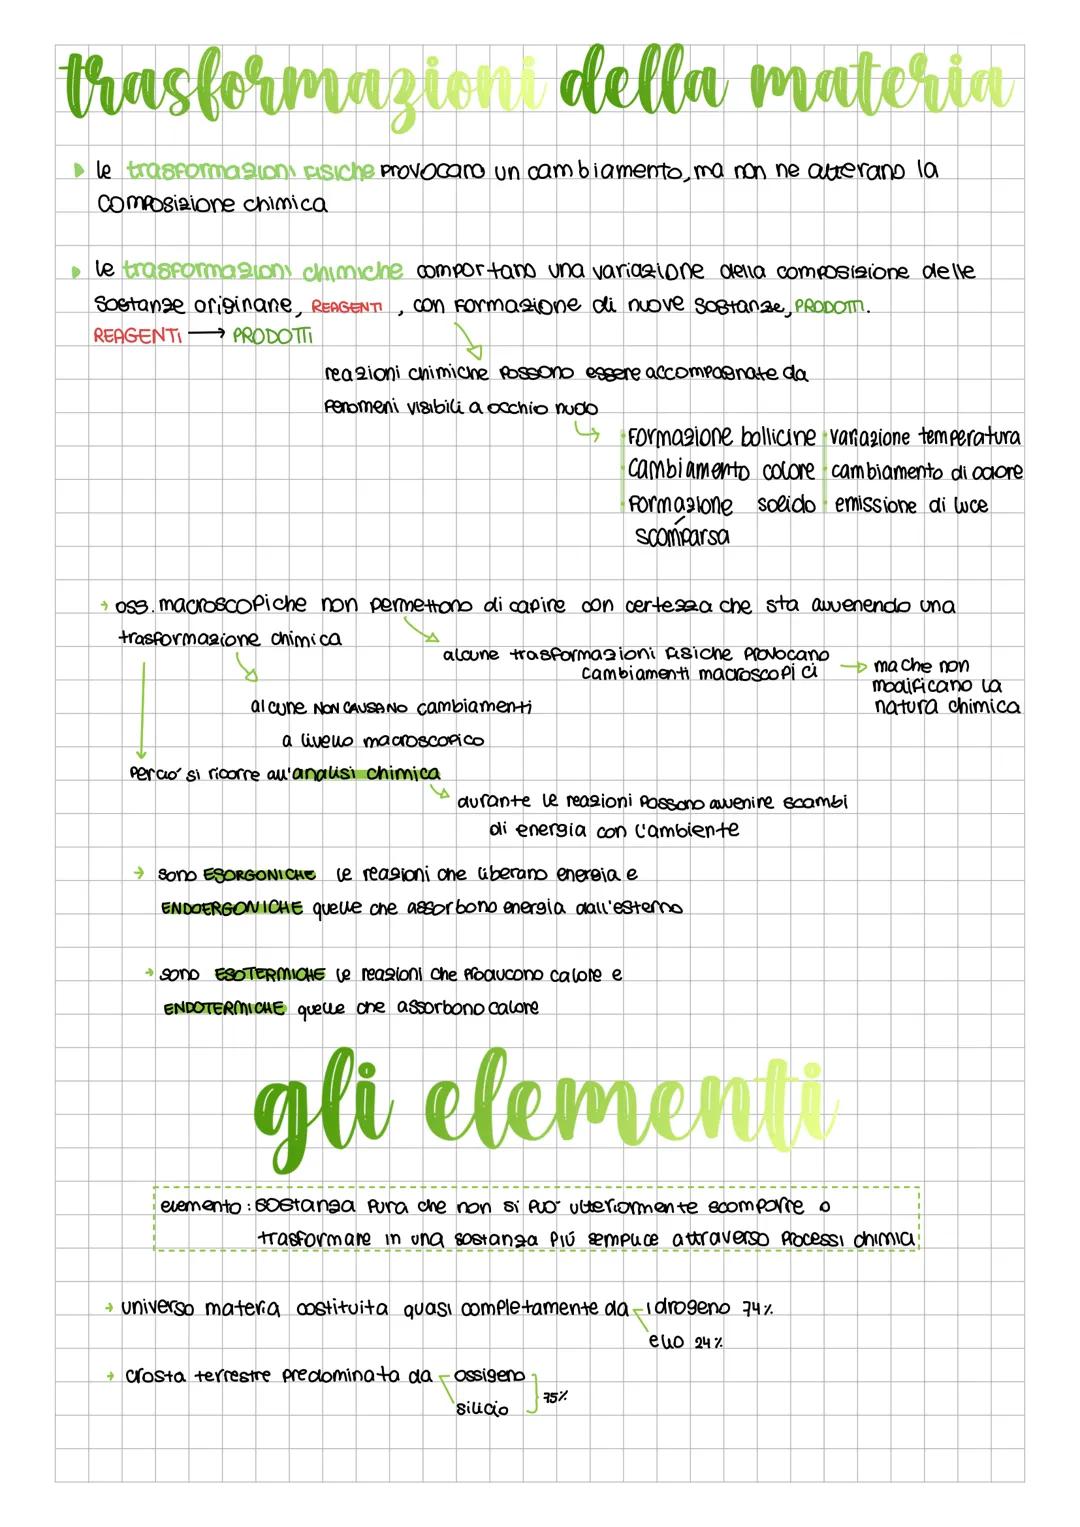 trasformazioni della materia
le trasformazioni fisiche provocano un cambiamento, ma non ne alterano la
composizione chimica
le trasformazioni chimiche comportano una variazione della composizione delle
sostanze originarie, REAGENTI, con formazione di nuove sostanze, PRODOTTI.
REAGENTI → PRODOTTI
reazioni chimiche possono essere accompagnate da
fenomeni visibili a occhio nudo
formazione bollicine variazione temperatura
cambiamento colore cambiamento di odore
formazione / solido emissione di luce
scomparsa
oss. macroscopiche non permettono di capire con certezza che sta avvenendo una
trasformazione chimica
alcune trasformazioni fisiche provocano
cambiamenti macroscopici
ma che non
modificano la
natura chimica
alcune NON CAUSANO cambiamenti
a livello macroscopico
perciò si ricorre all'analisi chimica
durante le reazioni possono avvenire scambi
di energia con l'ambiente
sono ESORGONICHE le reazioni che liberano energia e
ENDOERGONICHE quelle che assorbono energia dall'esterno
sono ESOTERMICHE le reazioni che producono calore e
ENDOTERMICHE quelle che assorbono calore
gli elementi
elemento: sostanza pura che non si può ulteriormente scomporre o
trasformare in una sostanza più semplice attraverso processi chimici
universo materia costituita quasi completamente da idrogeno 74%
elio 24%
crosta terrestre predominata da ossigeno
silicio
75%